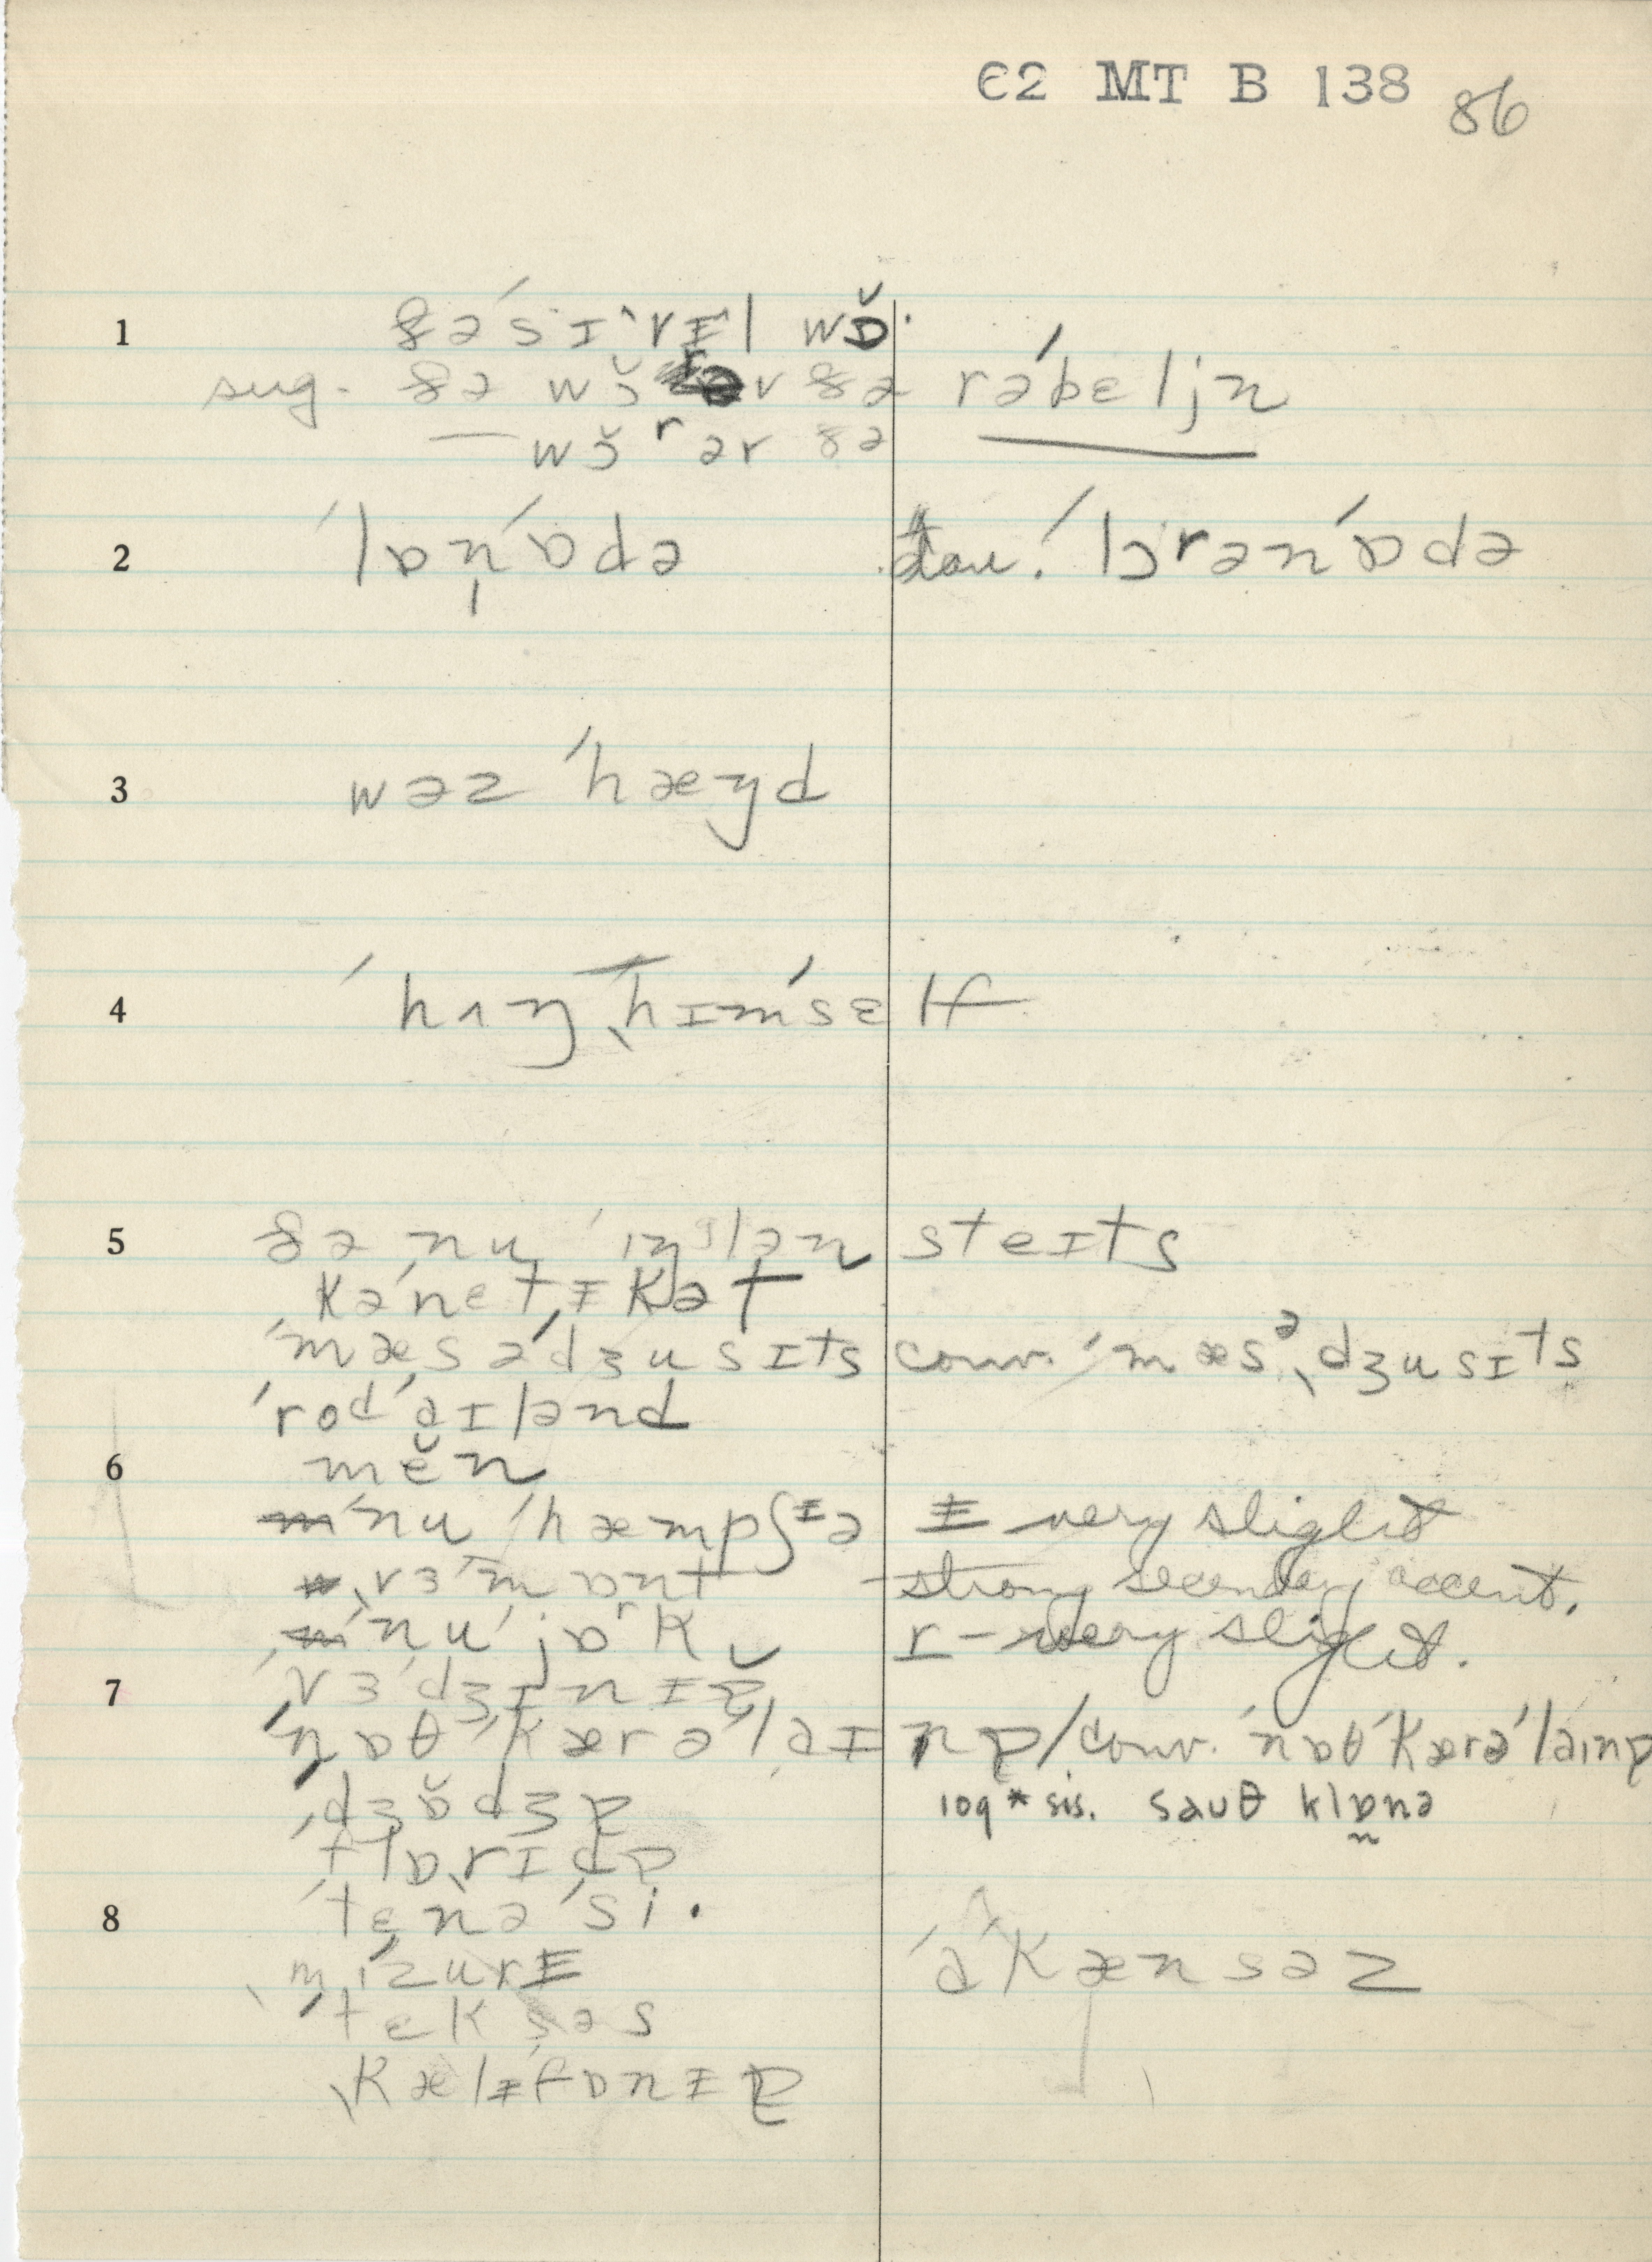 C2 MT B 138 86
1 ðə ˈsɪˌvɪˈl wɒ̆·
sug. ðə wɔ̆ əv ðə rəˈbɛljn
— wɔ̆ ʳ ər ðə
2 ˈlɒn̩ˈɒdə ˈlɔrənˈɒdə
3 wəz ˈhæŋd
4 ˈhʌŋ ˌhɪmˈsɛlf
5 ðə nu ˈɪŋᵍlən steɪts
kəˈnɛtɨkət
ˈmæsəˈdʒusɪts conv. ˈmæsᵊˌdʒusɪts
ˈrodˈaɪlənd
6 mĕn
ˈnu ˈhæmpʃᵻə ᵻ very slight
ˌvɜˈmɒnt strong secondary accent.
ˈnuˈjɒʳk r – very slight.
7 ˈvɜˈdʒɪnɪɐ̆
ˈnɒθˈkærəˈlaɪnɐ / conv. ˈnɒθˈkærəˈlaɪnɐ
ˌdʒɒ̆dʒɐ 109* sis. saʊθ klɒnə
ˈflɒˌrɪdɐ
8 ˈtɛnəˈsi.
ˌmɪˈzurɨ ˈɑˈkænsəz
ˈtɛksəs
ˌkælɨˈfɒnɪɐ